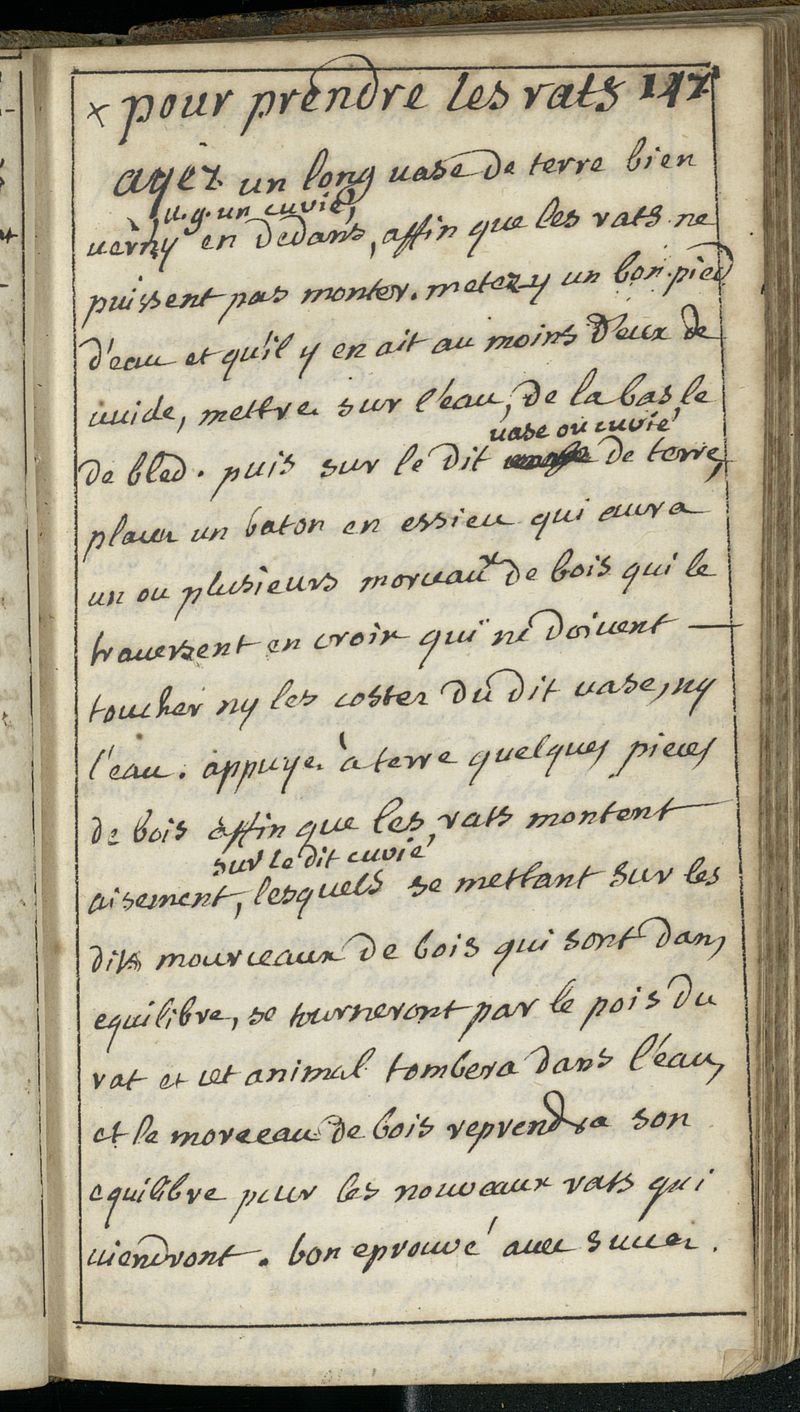 x pour prendre les rats 147
ayéz un long vase de terre bien
v.g. un cuvié,
verny en dedans, affin que les rats ne
puissent pas monter. metez y un bon pied
d'eau et qu'il y en ait au moins deux de
vuide, mettre sur l'eau, de la basle
vase ou cuvié
de bled. puis sur le dit de terre,
placer un baton en essieu qui aura
un ou plusieurs morceaux de bois qui le
traversent en croix quï ne doivent —
toucher ny les costez du dit vase, ny
l'eau. appuyez à terre quelques pieces
de bois affin que les rats montent
sur le dit cuvié
aisement, lesquels se mettant sur les
dits mourceaux de bois qui sont dans
equilibre, se tourneront par le pois du
rat et cet animal tombera dans l'éau,
et le morceau de bois reprendra son
equilibre pour les nouveaux rats qui
viendront. bon eprouvé avec succez.